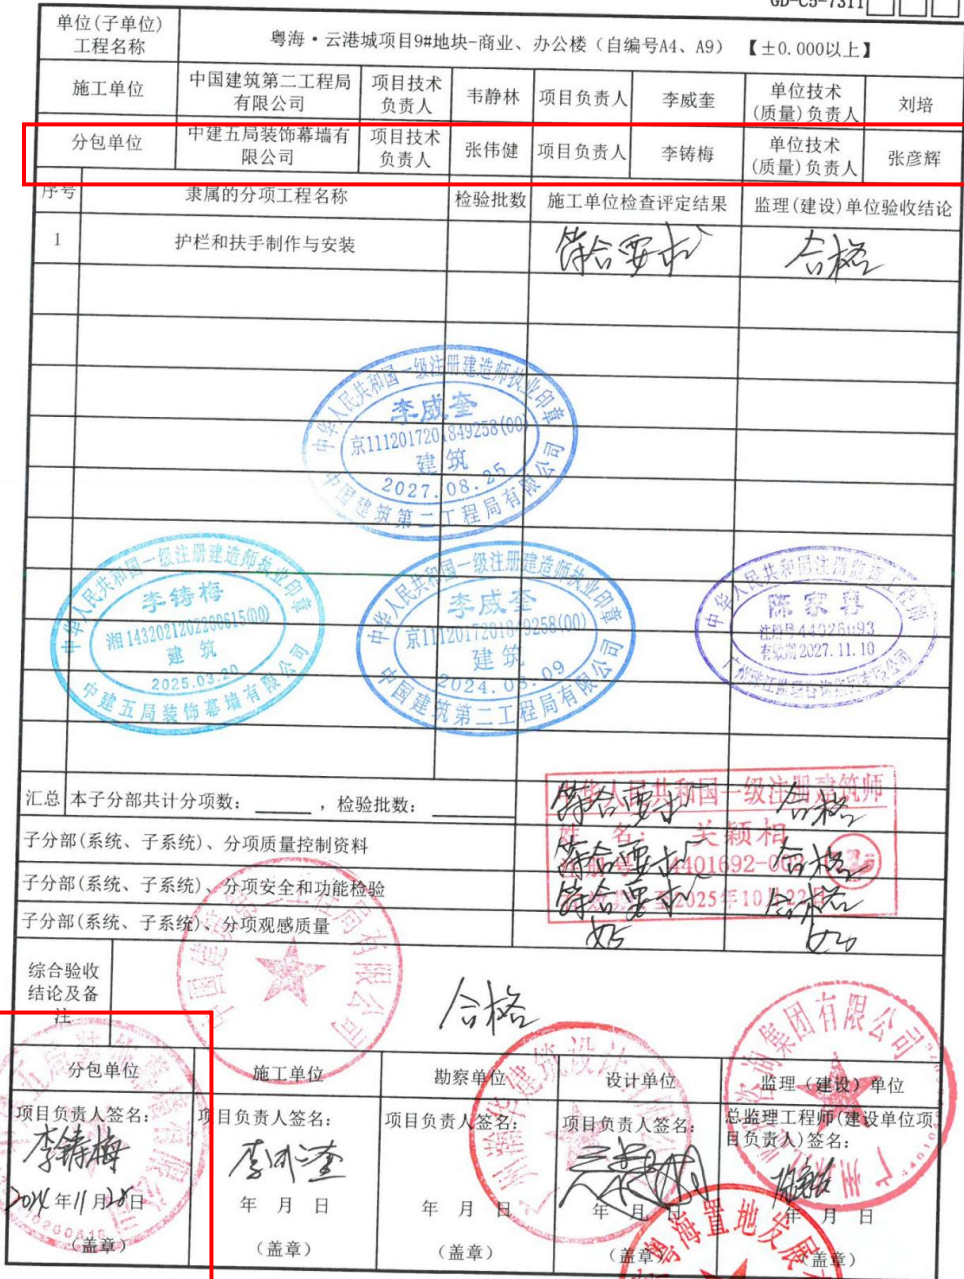 GD-C5-7311
单位(子单位)工程名称 粤海·云港城项目9#地块-商业、办公楼（自编号A4、A9）【±0.000以上】
施工单位 中国建筑第二工程局有限公司 项目技术负责人 韦静林 项目负责人 李威奎 单位技术(质量)负责人 刘培
分包单位 中建五局装饰幕墙有限公司 项目技术负责人 张伟健 项目负责人 李铸梅 单位技术(质量)负责人 张彦辉
序号 隶属的分项工程名称 检验批数 施工单位检查评定结果 监理(建设)单位验收结论
1 护栏和扶手制作与安装 符合要求 合格
中华人民共和国一级注册建造师执业印章
李威奎
京1112017201849258(00)
建筑
2027.08.25
中国建筑第二工程局有限公司
中华人民共和国一级注册建造师执业印章
李铸梅
湘1432021202200615(00)
建筑
2025.03.20
中建五局装饰幕墙有限公司
中华人民共和国一级注册建造师执业印章
李威奎
京1112017201849258(00)
建筑
2024.08.09
中国建筑第二工程局有限公司
中华人民共和国注册监理工程师
注册号44026093
有效期2027.11.10
汇总 本子分部共计分项数：____，检验批数：____ 符合要求 合格
子分部(系统、子系统)、分项质量控制资料 符合要求 合格
子分部(系统、子系统)、分项安全和功能检验 符合要求 合格
子分部(系统、子系统)、分项观感质量 好 好
中华人民共和国一级注册建筑师
姓名：关颖相
4401692-0
2025年10月22日
中国建筑第二工程局有限公司
综合验收结论及备注 合格
分包单位 施工单位 勘察单位 设计单位 监理（建设）单位
项目负责人签名： 项目负责人签名： 项目负责人签名： 项目负责人签名： 总监理工程师(建设单位项目负责人)签名：
李铸梅 李威奎
2024年11月28日 年 月 日 年 月 日 年 月 日 年 月 日
（盖章） （盖章） （盖章） （盖章） （盖章）
粤海置地发展